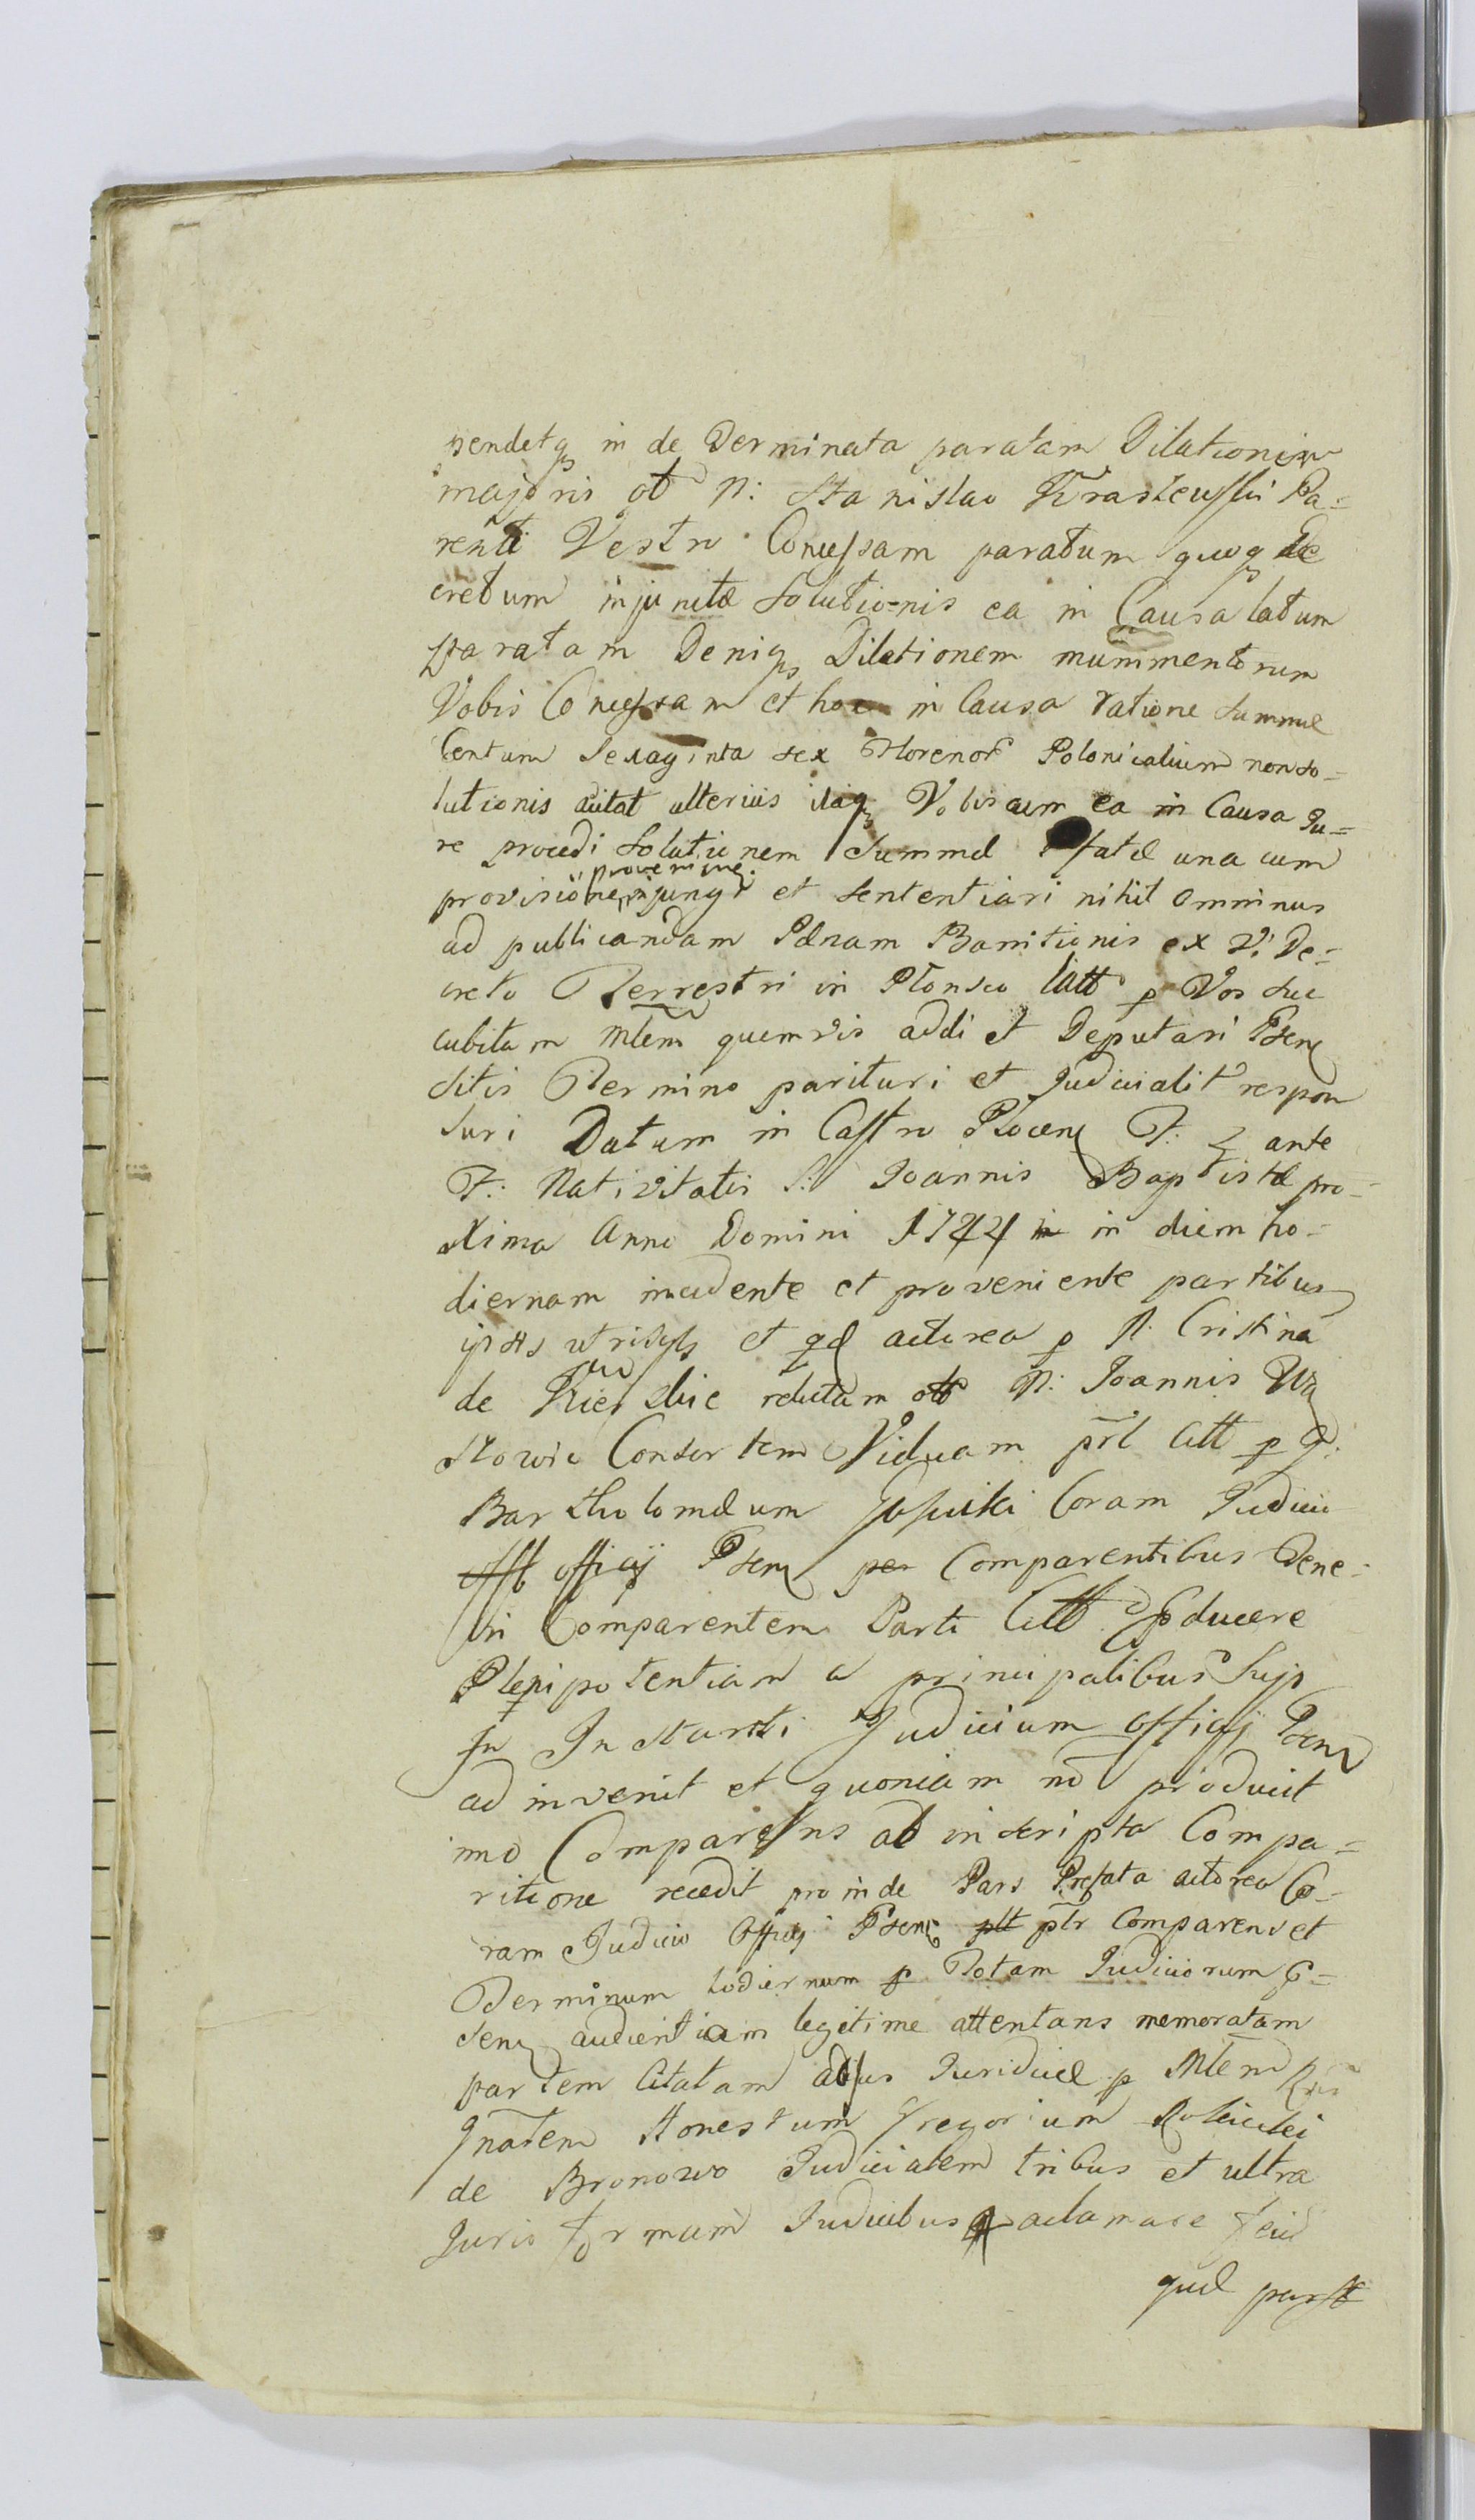 vendetq in de Terminata paratam Dilationem
majoris ob N: Stanislao Krasiewski Pa=
renti Vestro Concessam paratum quoq De
cretum injunctæ Solutionis ea in Causa latum
paratam Deniq Dilationem munimentorum
Vobis Concessam et hoc in Causa ratione Summæ
Centum Sexaginta sex Florenor Polonicalium non so=
lutionis citat ulterius itaq Vobiscum ea in Causa Ju=
re procedi Solutionem Summæ fatæ una cum
provenine
provisione injungi et Sententiari nihil omninus
ad publicandam Pænam Banitionis ex Vi De=
creto Terrestri in Plonsco latt p Vos Suc
cubitam Mlem quemvis addi et Deputari Psen
Sitis Termino parituri et Judicialit respon
Suri Datum in Castro Plocen F: ante
F: Nativitatis S: Joannis Baptistæ pro=
xima Anno Domini 1744 in in diem ho=
diernam incidente et proveniente partibus
ipsis utrisqs et qd actorea p N. Cristina
de relictam N: Joannis
Consortem Viduam prl Citt p G:
Bartholomæum Coram Judicio
offi officij Psen per Comparentibus Tene=
ri Comparentem Parti Citt pducere
Plenipotentiam a principalibus Suis
In Instanti Judicium officij Psen
ad invenit et quoniam no produxit
imo Comparens ab inscripta Compa=
ritione recedit proinde Pars Prefata actorea Co=
ram Judicio Officij Psen plt plr Comparens et
Terminum hodiernum p Totam Judiciorum P=
sen audientiam legitime attentans memoratam
partem Citatam Juridice p Mlem
Gnalem Honestum Gregorium
de Bronowo Judicialem tribus et ultra
Juris formam Judicibus aclamare fecit
quæ pars